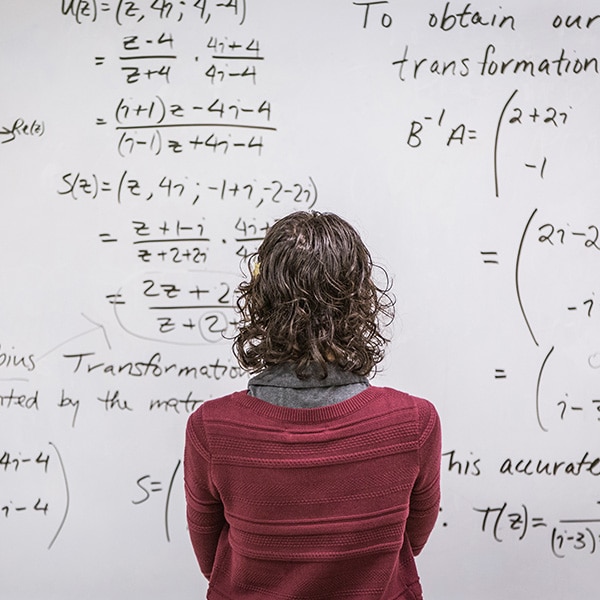 U(z)=(z, 4i; 4, -4)
= z-4/z+4 · 4i+4/4i-4
= (i+1)z-4i-4/(i-1)z+4i-4
→Re(z)
S(z)=(z, 4i; -1+i, -2-2i)
= z+1-i/z+2+2i · 4i+
= 2z+2/z+2
bius Transformation
nted by the matri
4i-4
i-4
S=(
To obtain our
transformation
B⁻¹A= (2+2i
-1
= (2i-2
-i
= (
i-3
his accurate
: T(z)=
(i-3)